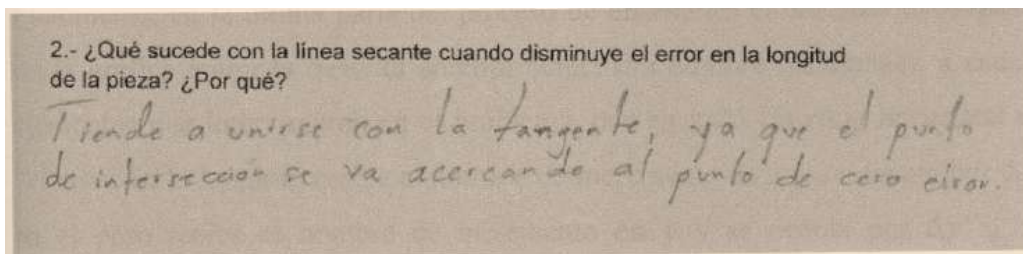 2.- ¿Qué sucede con la línea secante cuando disminuye el error en la longitud
de la pieza? ¿Por qué?
Tiende a unirse con la tangente, ya que el punto
de intersección se va acercando al punto de cero error.